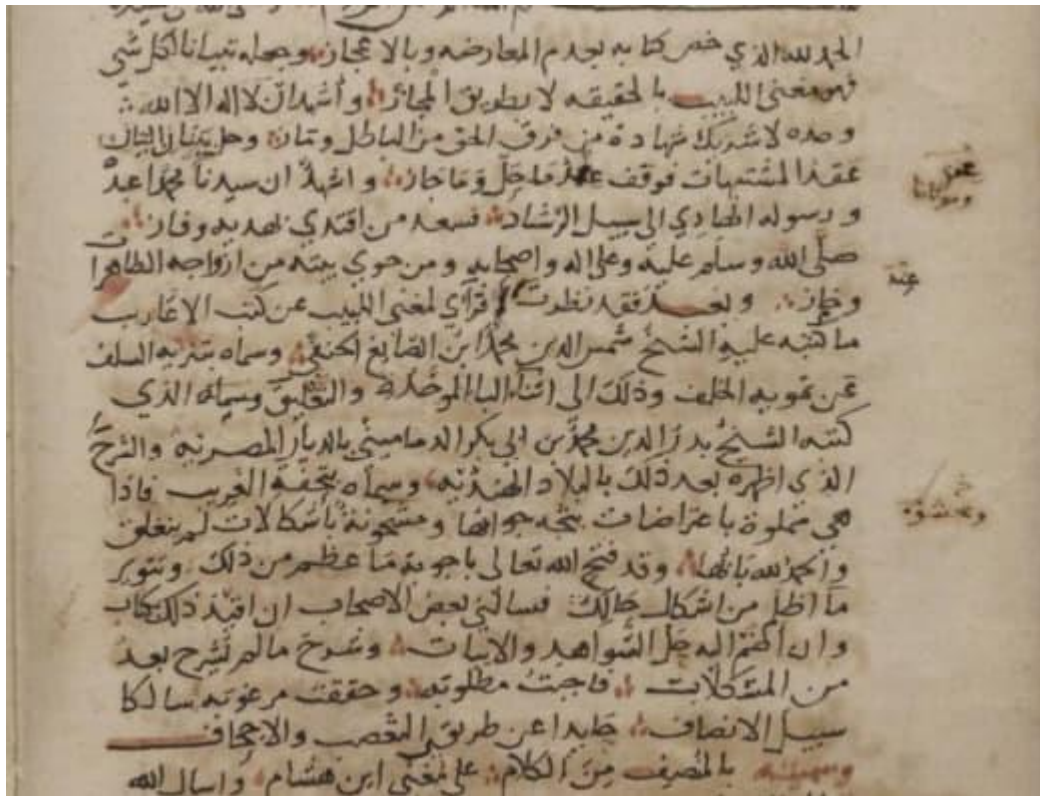 الحمد لله الذي خص كتابه بعدم المعارضه وبالاعجاز وجعله تبيانا لكل شي
فهو مغني اللبيب بالحقيقه لا بطريق المجاز وأشهد ان لا اله الا الله
وحده لا شريك شهادة من فرق الحق من الباطل وماز وحل ببنان البيان
عقد المشتبهات فوقف عند ما حل وما جاز واشهد ان سيدنا محمدا عبده
ورسوله الهادي الى سبيل الرشاد فسعد من اقتدي بهديه وفاز
صلى الله وسلم عليه وعلى اله واصحابه ومن حوي بيته من ازواجه الطاهرات
وحاز وبعد فقد نظرت قرآي لمغني اللبيب عن كتب الاعاريب
ما كتبه عليه الشيخ شمس الدين محمد ابن الصايغ الحنفي وسماه بتنزيه السلف
عن تمويه الخلف وذلك الى اثناء الباء الموحدة والتعليق وسماه الذي
كتبه الشيخ بدر الدين محمد بن ابي بكر الدماميني بالديار المصريه والشرح
الذي اظهره بعد ذلك بالبلاد الهنديه وسماه بتحفة الغريب فاذا
هي مملوة باعتراضات يتجه جوابها ومشحونة باشكالات لم ينغلق
والحمد لله بابها وقد فتح الله تعالى باجوبة ما عظم من ذلك وتنوير
ما اظلم من اشكال حالك فسالني بعض الاصحاب ان اقيد ذلك بكتاب
وان اضم اليه حل الشواهد والابيات وشرح ما لم يشرح بعد
من المشكلات فاجبت مطلوبه وحققت مرغوبه سالكا
سبيل الانصاف حايدا عن طريقي التعصب والاجحاف
وسميته بالمنصف من الكلام على مغني ابن هشام واسال الله
ومولانا
عند